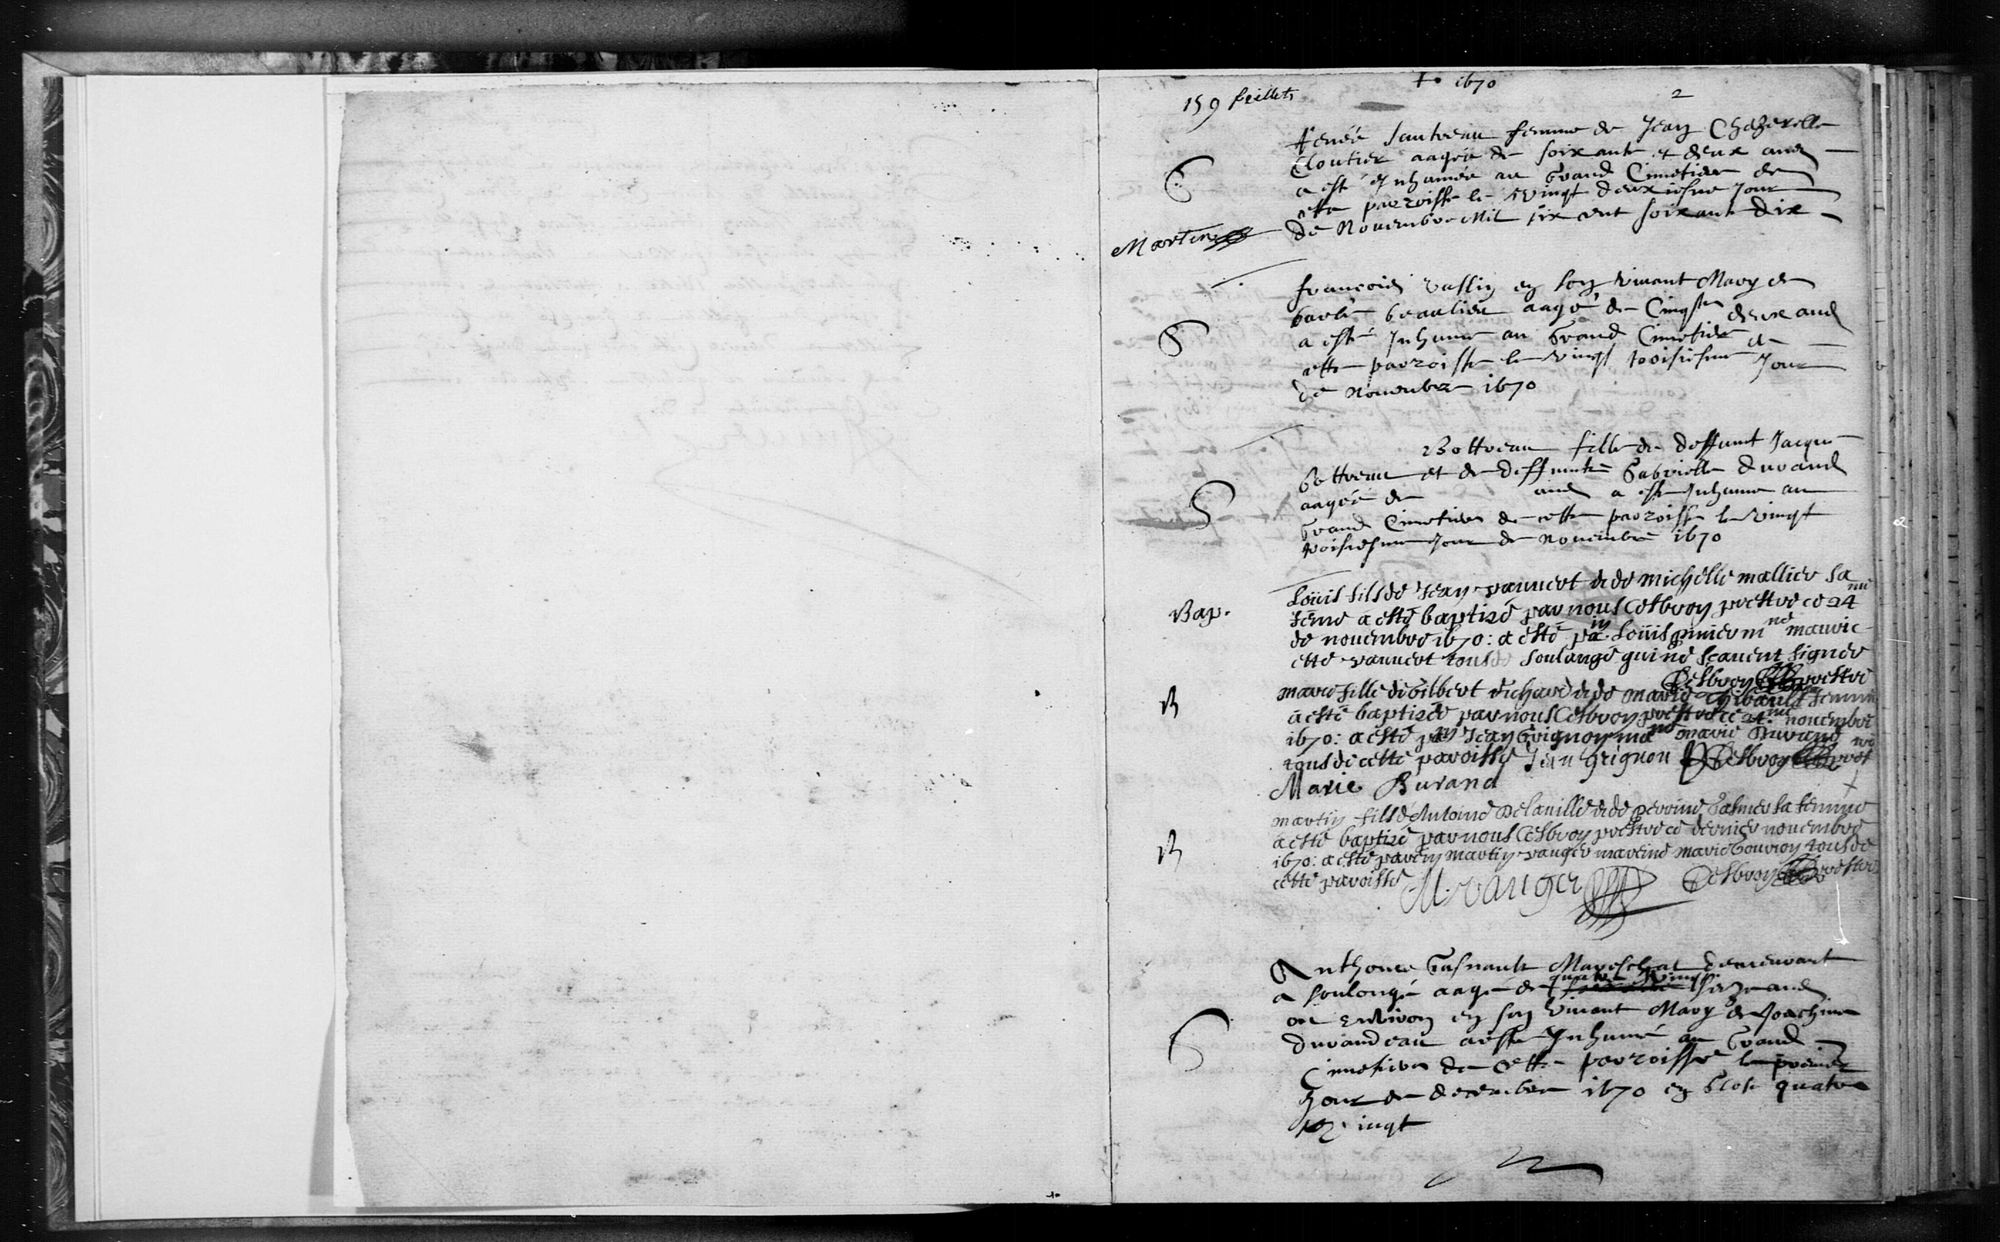 159 feuillets
+ 1670
2
Renée Sautreau femme de Jean
Cloutier aagée de soixante et deux ans
S
a esté Inhumée au Grand Cimetiere de
cette parroisse le vingt deuxiesme Jour
de Novembre Mil six cent soixante dix
Martin
francois vaslin en son vivant Mary de
barbe beaulieu aagé de Cinq^te deux ans
S
a esté Inhumé au Grand Cimetiere de
cette parroisse le vingt troisiesme Jour
de Novembre 1670
Bottreau fille de deffunt Jacque
bottreau et de deffunte Gabrielle durand
aagée de ans a esté Inhumé au
S
Grand Cimetiere de cette parroisse le vingt
troisiesme Jour de Novembre 1670
Loüis fils de Jean vannert & de michelle mallier sa
Bap.
feme a esté baptisé par nous Cesbron prestre ce 24^me
de novembre 1670: a esté pa^in Loüis m^ne
ette vannert tous de soulangé qui ne scauent signer
Cesbron prestre
B
marie fille de Gilbert richard & de marie Thibault sa femme
a esté baptisée par nous Cesbron prestre ce 24^me novembre
1670: a esté pa^in Jean Grignon ma^ne marie Durand
tous de cette paroisse Jean grignon Cesbron prest
Marie Durand
martin fils d'Antoine Delauille & de perrine sa femme
B
a esté baptisé par nous Cesbron prestre ce dernier novembre
1670: a esté parein martin vanger mareine marie Gouron tous de
cette paroisse M. vanger Cesbron prestre
Anthoine Gasnault Mareschal demeurant
a soulangé aagé de quatre vingt seize ans
ou environ en son vivant Mary de Joachine
S
durandeau a esté Inhumé au Grand
Cimetiere de cette parroisse le premier
Jour de decembre 1670 en Glose quatre
vingt